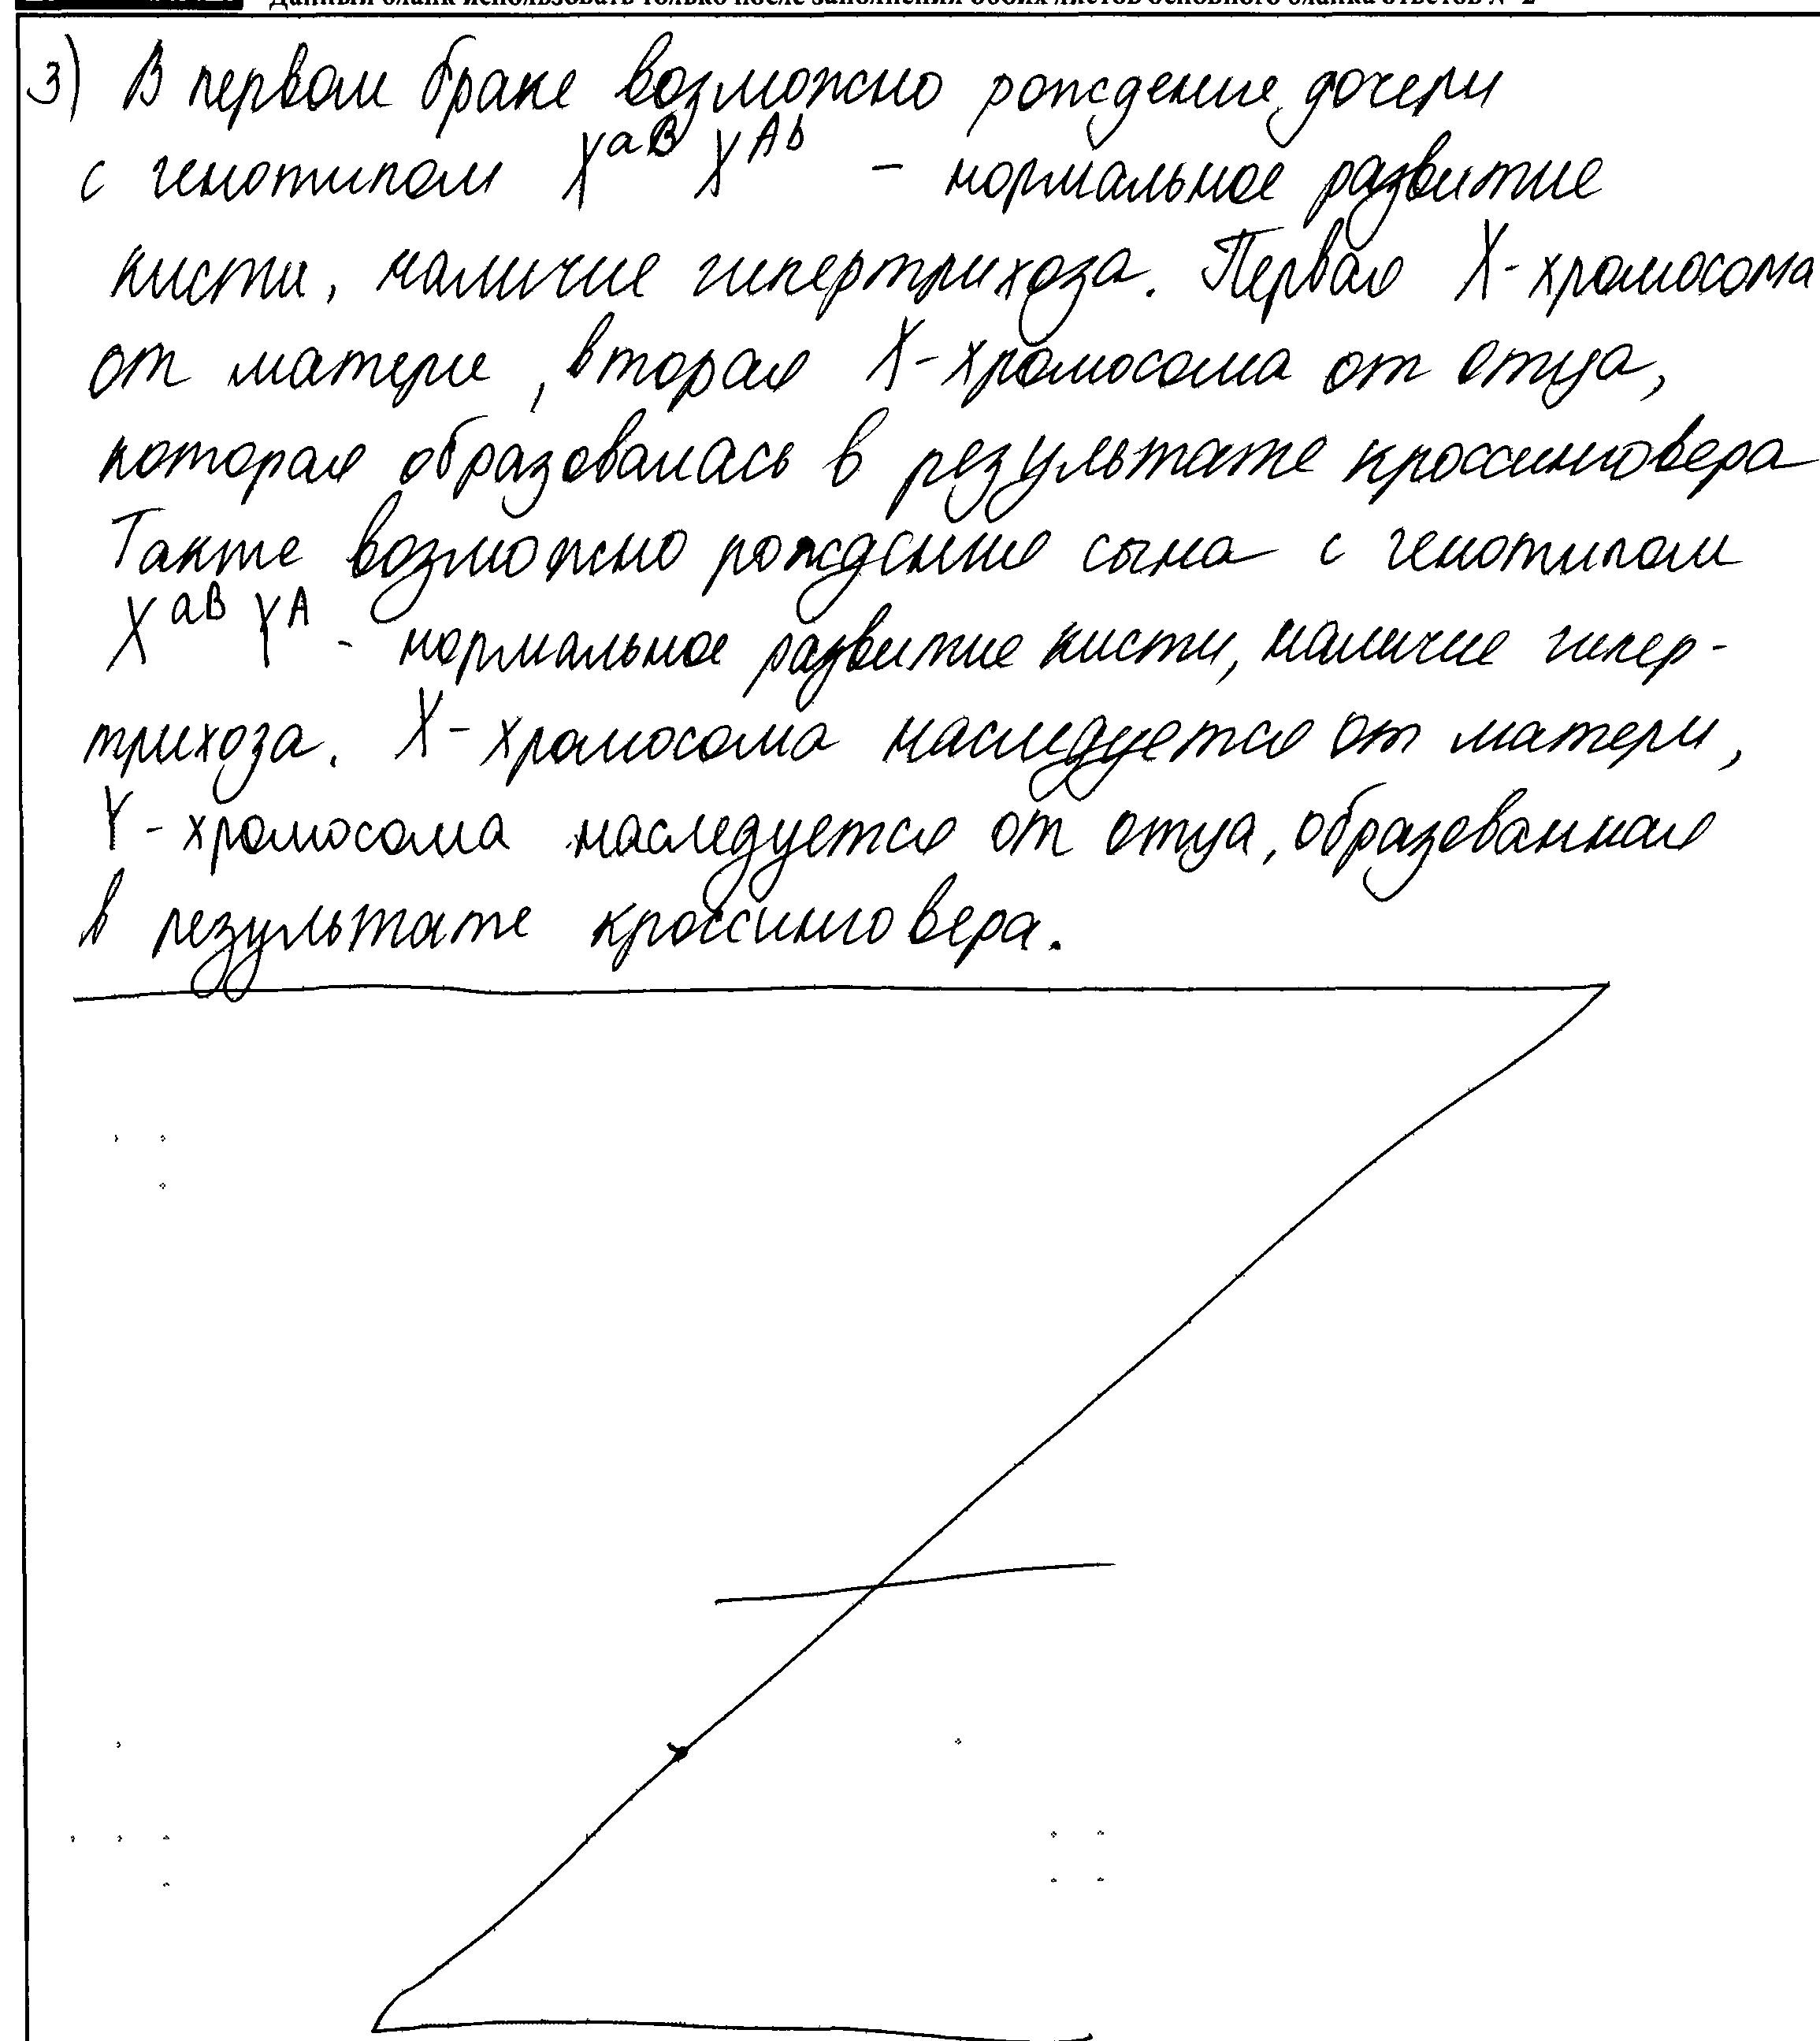 Данный бланк использовать только после заполнения обоих листов основного бланка ответов № 2
3) В первом браке возможно рождение дочери
с генотипом X^aB X^Ab - нормальное развитие
кисти, наличие гипертрихоза. Первая X-хромосома
от матери, вторая X-хромосома от отца,
которая образовалась в результате кроссинговера
Также возможно рождение сына с генотипом
X^aB Y^A - нормальное развитие кисти, наличие гипер-
трихоза. X-хромосома наследуется от матери,
Y-хромосома наследуется от отца, образованная
в результате кроссинговера.